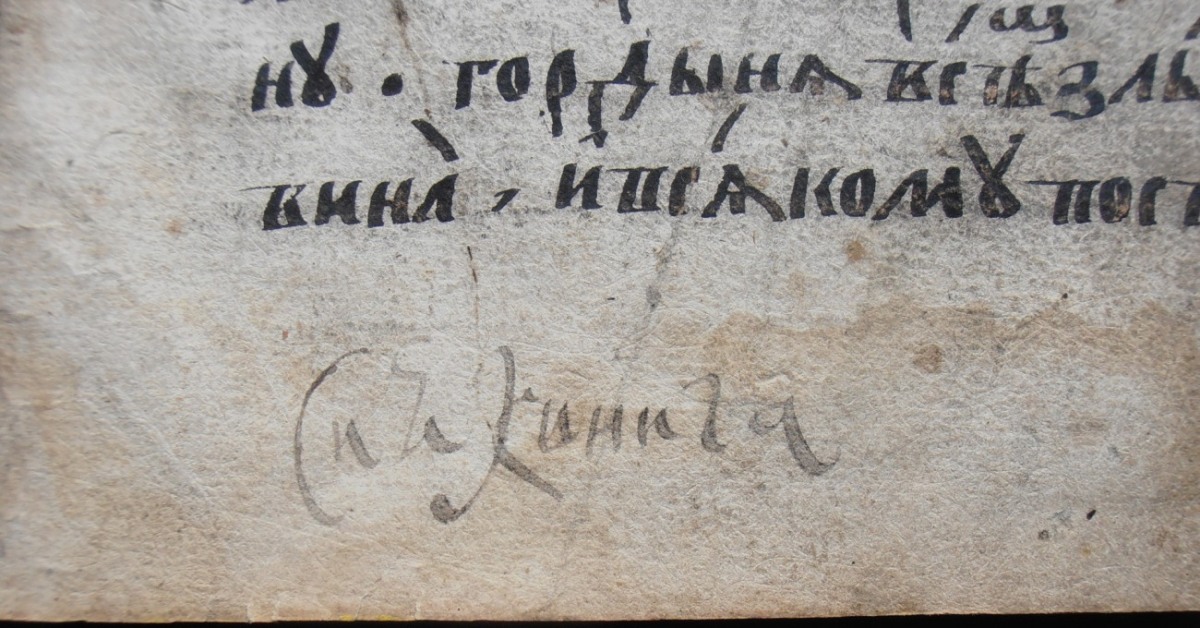 нꙋ · гордына всѣ злы
вина̀, и всѧ́комꙋ пост
Сиѧ книга